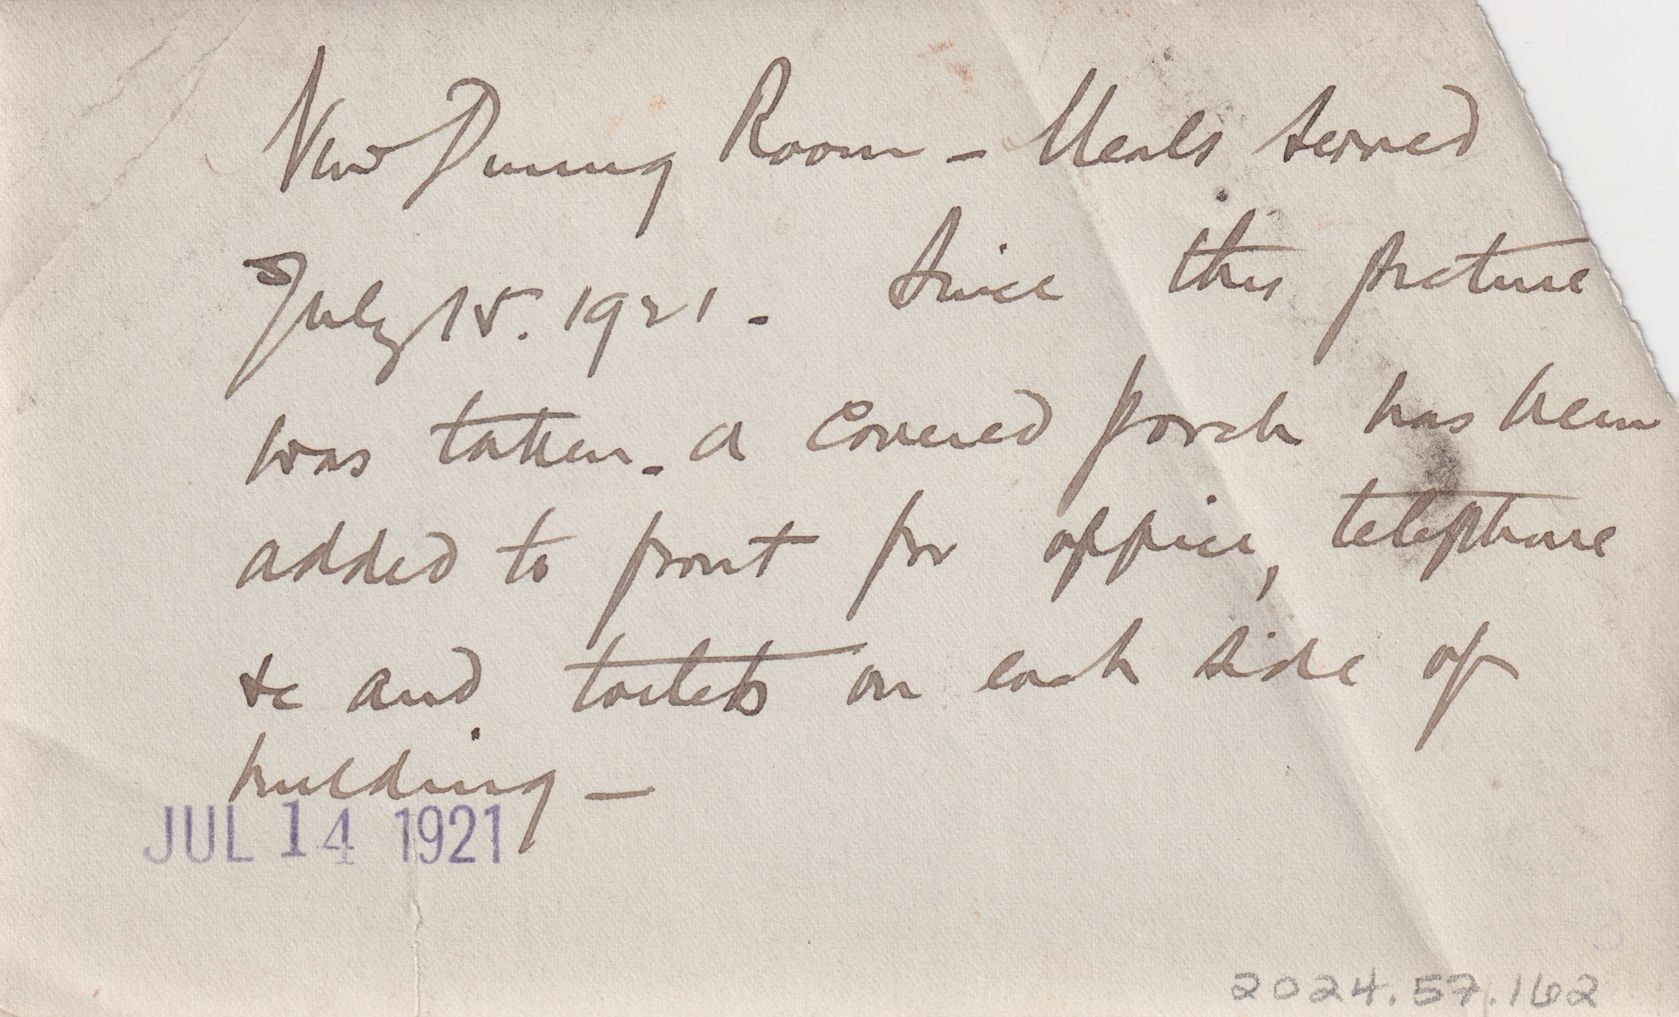 New Dining Room - Meals served
July 15. 1921. Since this picture
was taken - a covered porch has been
added to front for office, telephone
&c and toilets on each side of
building -
JUL 14 1921
2024.57.162